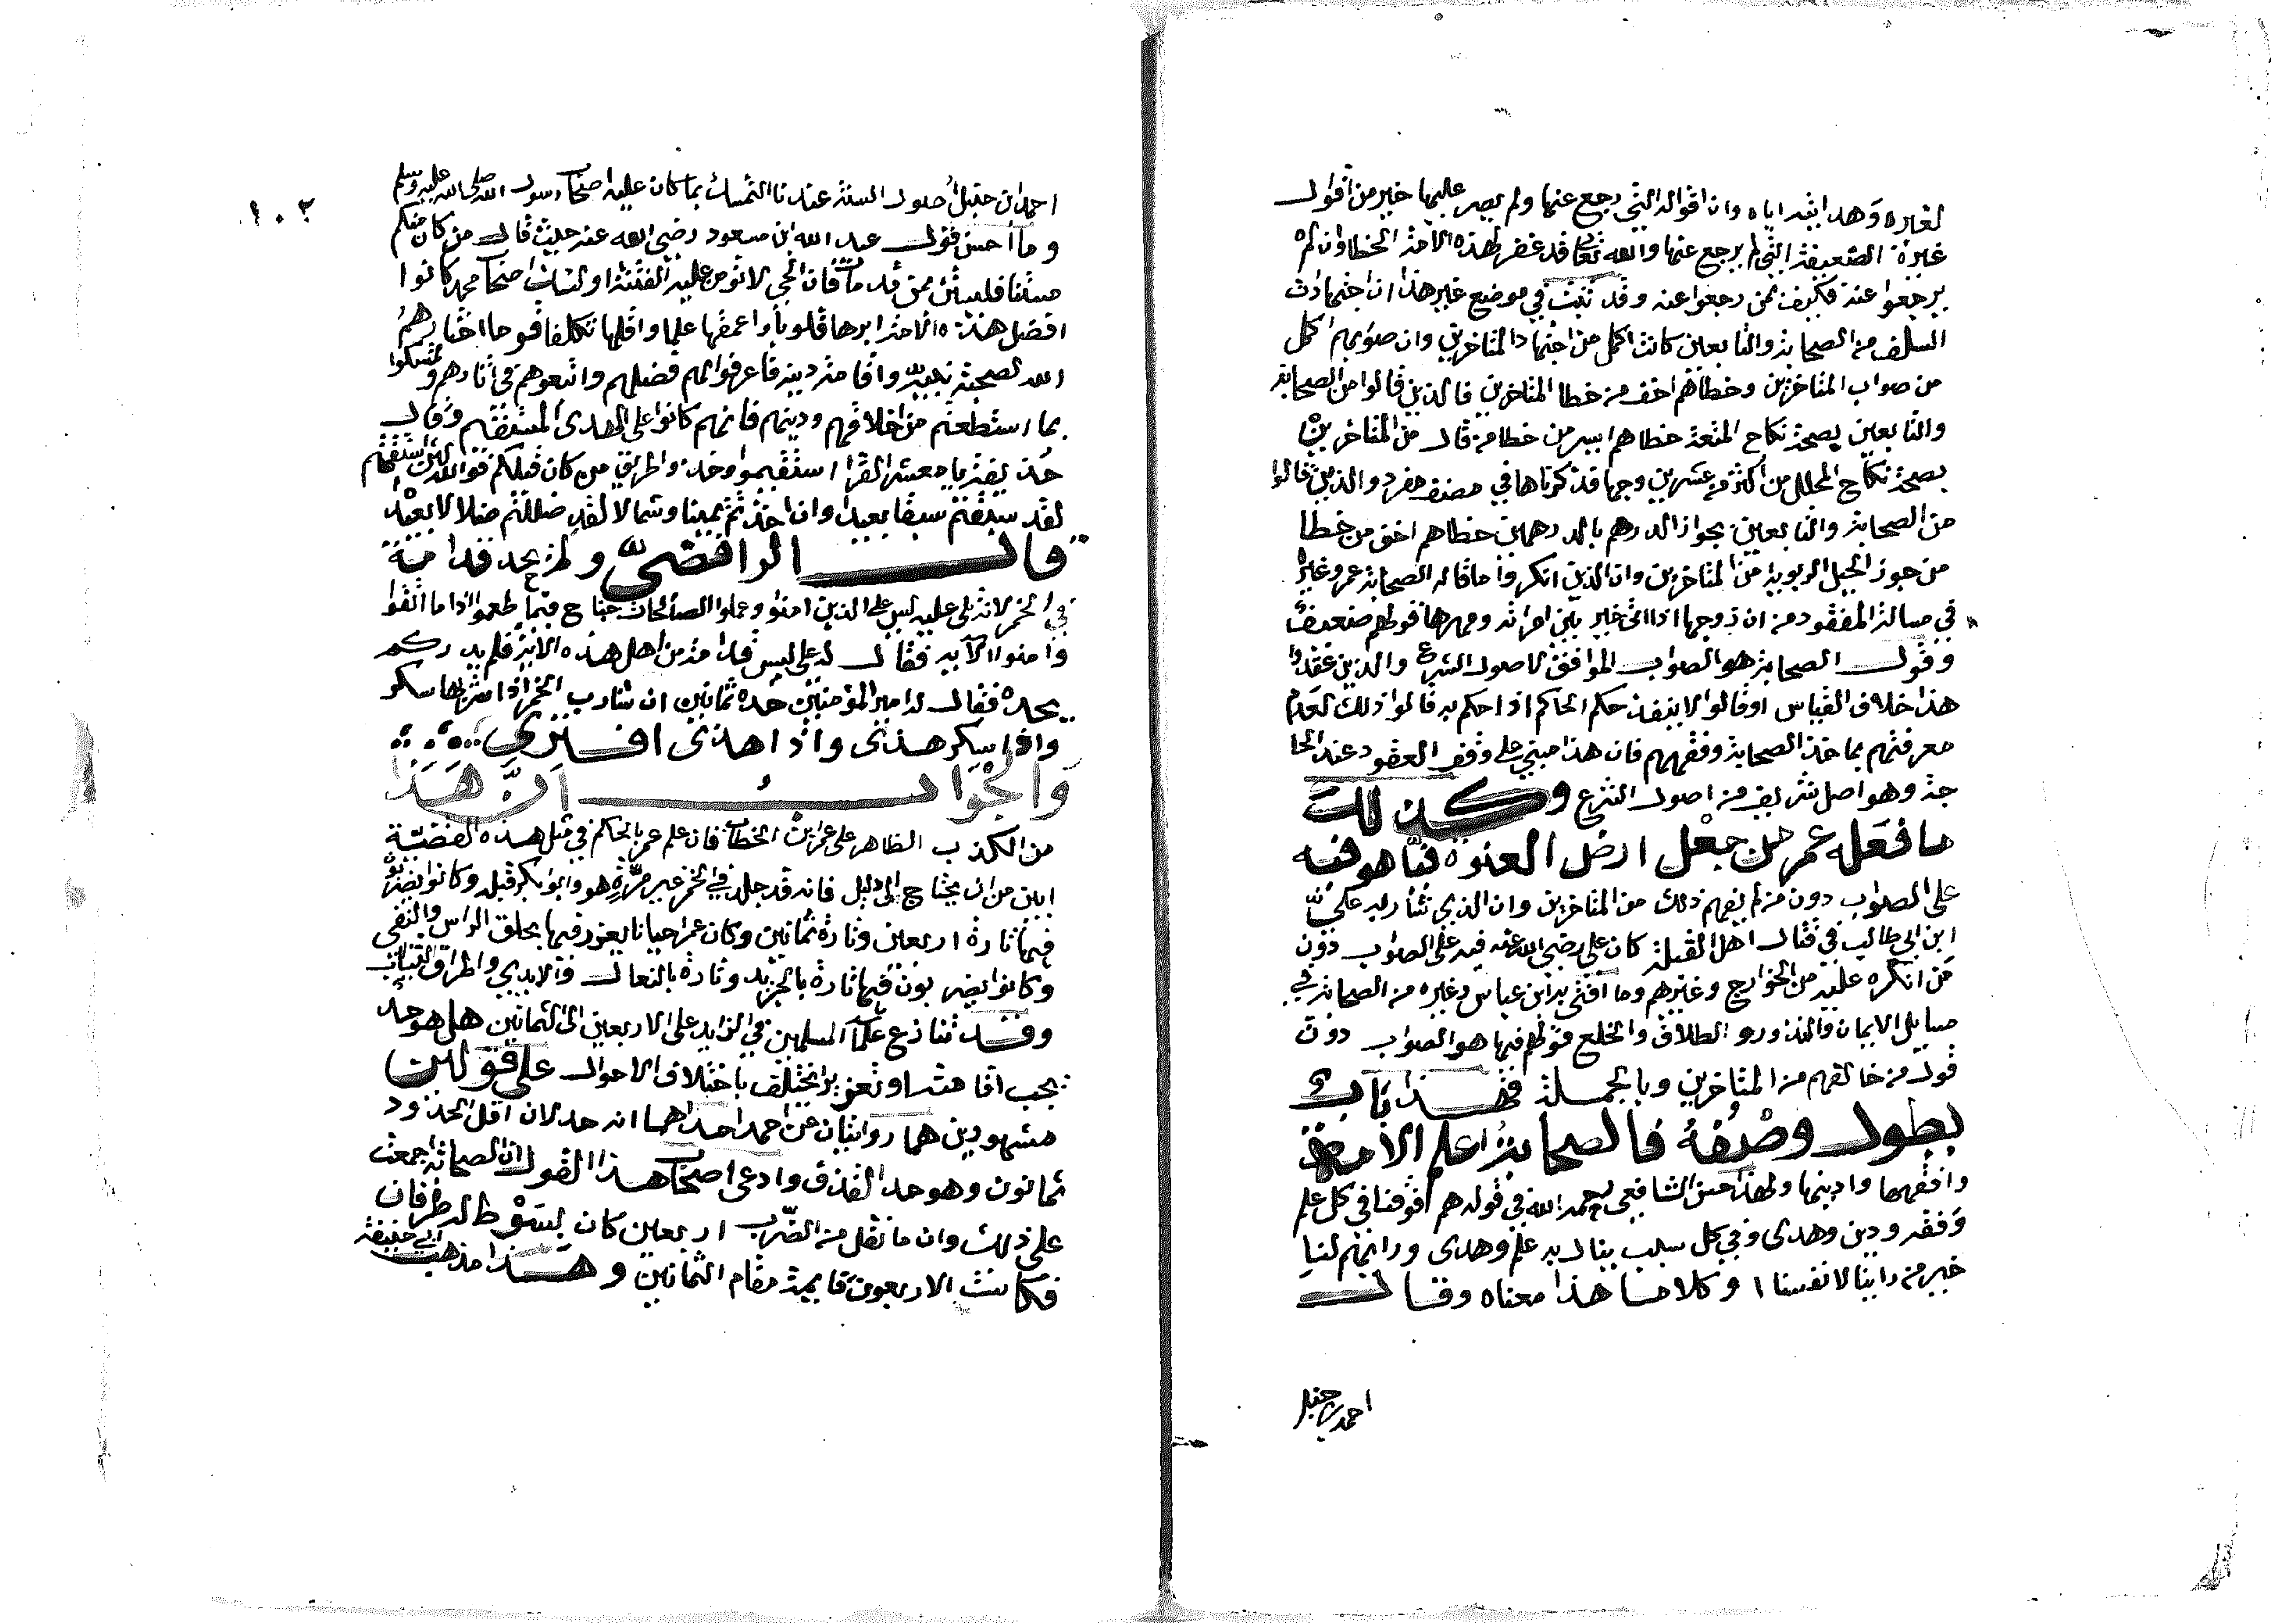 لغيره وهدايته اياه وان اقواله التي رجع عنها ولم يصر عليها خير من اقوال
غيره الضعيفة التي لم يرجع عنها والله تعالى قد غفر لهذه الامة الخطا وان لم
يرجعوا عنه فكيف بمن رجعوا عنه وقد ثبت في موضع غير هذا ان اجتهادات
السلف من الصحابة والتابعين كانت اكمل من اجتهاد المتاخرين وان صوابهم اكمل
من صواب المتاخرين وخطاهم اخف من خطا المتاخرين فالذين قالوا من الصحابة
والتابعين بصحة نكاح المتعة خطاهم ايسر من خطا من قال من المتاخرين
بصحة نكاح المحلل من اكثر من عشرين وجها قد ذكرناها في مصنف مفرد والذين قالوا
من الصحابة والتابعين بجواز الدرهم بالدرهمين خطاهم اخف من خطا
من جوز الحيل الربوية من المتاخرين وان الذين انكروا ما قاله الصحابة عمر وغيره
في مسالة المفقود من ان زوجها اذا اتى خير بين امراته ومهرها قولهم ضعيف
وقول الصحابة هو الصواب الموافق لاصول الشرع والذين عدوا
هذا خلاف القياس اوقالوا لا ينفذ حكم الحاكم اذا حكم به قالوا ذلك لعدم
معرفتهم بماخذ الصحابة وفقههم فان هذا مبني على وقف العقود عند الحا
جة وهو اصل شريف من اصول الشرع وكذلك
ما فعله عمر من جعل ارض العنوة فيئا هو فيه
على الصواب دون من لم يفهم ذلك من المتاخرين وان الذي اشار به علي
ابن ابي طالب في قتال اهل القبلة كان علي رضي الله عنه فيه على الصواب دون
من انكره عليه من الخوارج وغيرهم وما افتى به ابن عباس وغيره من الصحابة في
مسايل الايمان والنذور والطلاق والخلع قولهم فيها هو الصواب دون
قول من خالفهم من المتاخرين وبالجملة فهذا باب
يطول وصفه فالصحابة اعلم الامة
وافقهها وادينها ولهذا احسن الشافعي رحمه الله في قوله هم فوقنا في كل علم
وفقه ودين وهدى وفي كل سبب ينال به علم وهدى ورايهم لنا
خير من راينا لانفسنا او كلاما هذا معناه وقال
احمد بن حنبل
١٠٣
احمد ابن حنبل اصول السنة عندنا التمسك بما كان عليه اصحاب رسول الله صلى الله عليه وسلم
وما احسن قول عبد الله ابن مسعود رضي الله عنه حيث قال من كان منكم
مستنا فليستن بمن قد مات فان الحي لا تومن عليه الفتنة اولئك اصحاب محمد كانوا
افضل هذه الامة ابرها قلوبا واعمقها علما واقلها تكلفا قوما اختارهم
الله لصحبة نبيه واقامة دينه فاعرفوا لهم فضلهم واتبعوهم في اثارهم وتمسكوا
بما استطعتم من اخلاقهم ودينهم فانهم كانوا على الهدى المستقيم وقال
حذيفة يا معشر القرا استقيموا وخذوا طريق من كان قبلكم فوالله لئن استقمتم
لقد سبقتم سبقا بعيدا وان اخذتم يمينا وشمالا لقد ضللتم ضلالا بعيدا
قال الرافضي ولم يحد قدامة
في الخمر لانه تلى عليه ليس على الذين امنوا وعملوا الصالحات جناح فيما طعموا اذا ما اتقوا
وامنوا الآية فقال له علي ليس قدامة من اهل هذه الاية فلم يدركم
يحده فقال له امير المؤمنين حده ثمانين ان شارب الخمر اذا شربها سكر
واذا سكر هذى واذا هذى افترى
والجواب ان هذا
من الكذب الظاهر على عمر ابن الخطاب فان علم عمر بالحاكم في مثل هذه القضية
ابين من ان يحتاج الى دليل فانه قد جلد في الخمر غير مرة هو وابو بكر قبله وكانوا يضربون
فيها تارة اربعين وتارة ثمانين وكان عمر احيانا يعزر فيها بحلق الراس والنفي
وكانوا يضربون فيها تارة بالجريد وتارة بالنعال والايدي واطراق الثياب
وقد تنازع علماء المسلمين في الزايد على الاربعين الى الثمانين هل هو حد
يجب اقامته او تعزير يختلف باختلاف الاحوال على قولين
مشهورين هما روايتان عن احمد احداهما انه حد لان اقل الحدود
ثمانون وهو حد القذف وادعى اصحاب هذا القول ان الصحابة اجمعت
على ذلك وان ما نقل من الضرب اربعين كان بسوط له طرفان
فكانت الاربعون قايمة مقام الثمانين وهذا مذهب ابي حنيفة